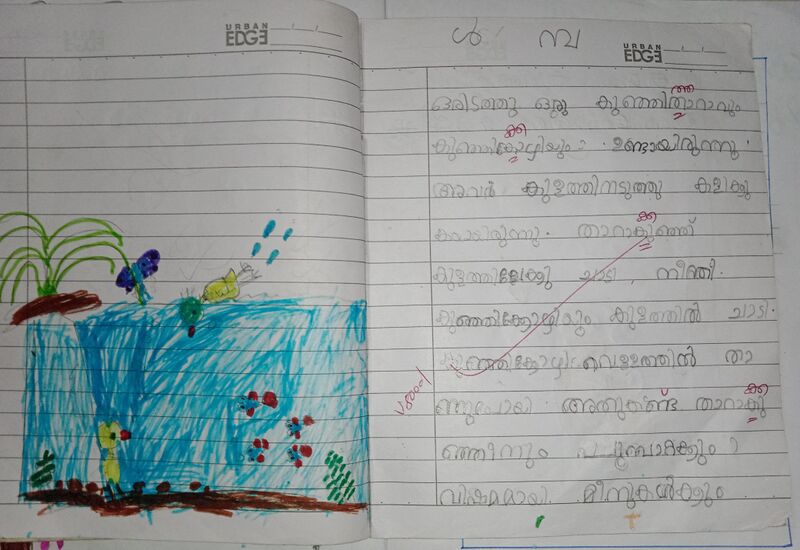 URBAN
EDGE
ൾ മ്പ
URBAN
EDGE
ഒരിടത്തു ഒരു കുഞ്ഞിതാറാവും
ത്ത
കുഞ്ഞികോഴിയും ഉണ്ടായിരുന്നു.
ക്ക
അവർ കുളത്തിനടുത്തു കളിക്കു
കയായിരുന്നു. താറാകുഞ്ഞ്
ക്ക
കുളത്തിലേക്കു ചാടി, നീന്തി.
കുഞ്ഞിക്കോഴിയും കുളത്തിൽ ചാടി.
കുഞ്ഞിക്കോഴി വെള്ളത്തിൽ താ
ഴ്ന്നുപോയി. അതുകണ്ട് താറാകു
ക്ക
ഞ്ഞിനും
വിഷമമായി. മീനുകൾക്കും